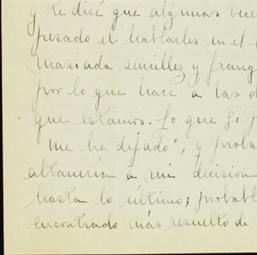 y te diré que algunas vece
pesado el hablarles en el
masiada sencillez y franq
por lo que hace a las d
que estamos. Lo que si p
me he dejado", y proba
altanería a mi decision
hasta lo último; probabl
encontrado más resuelto de